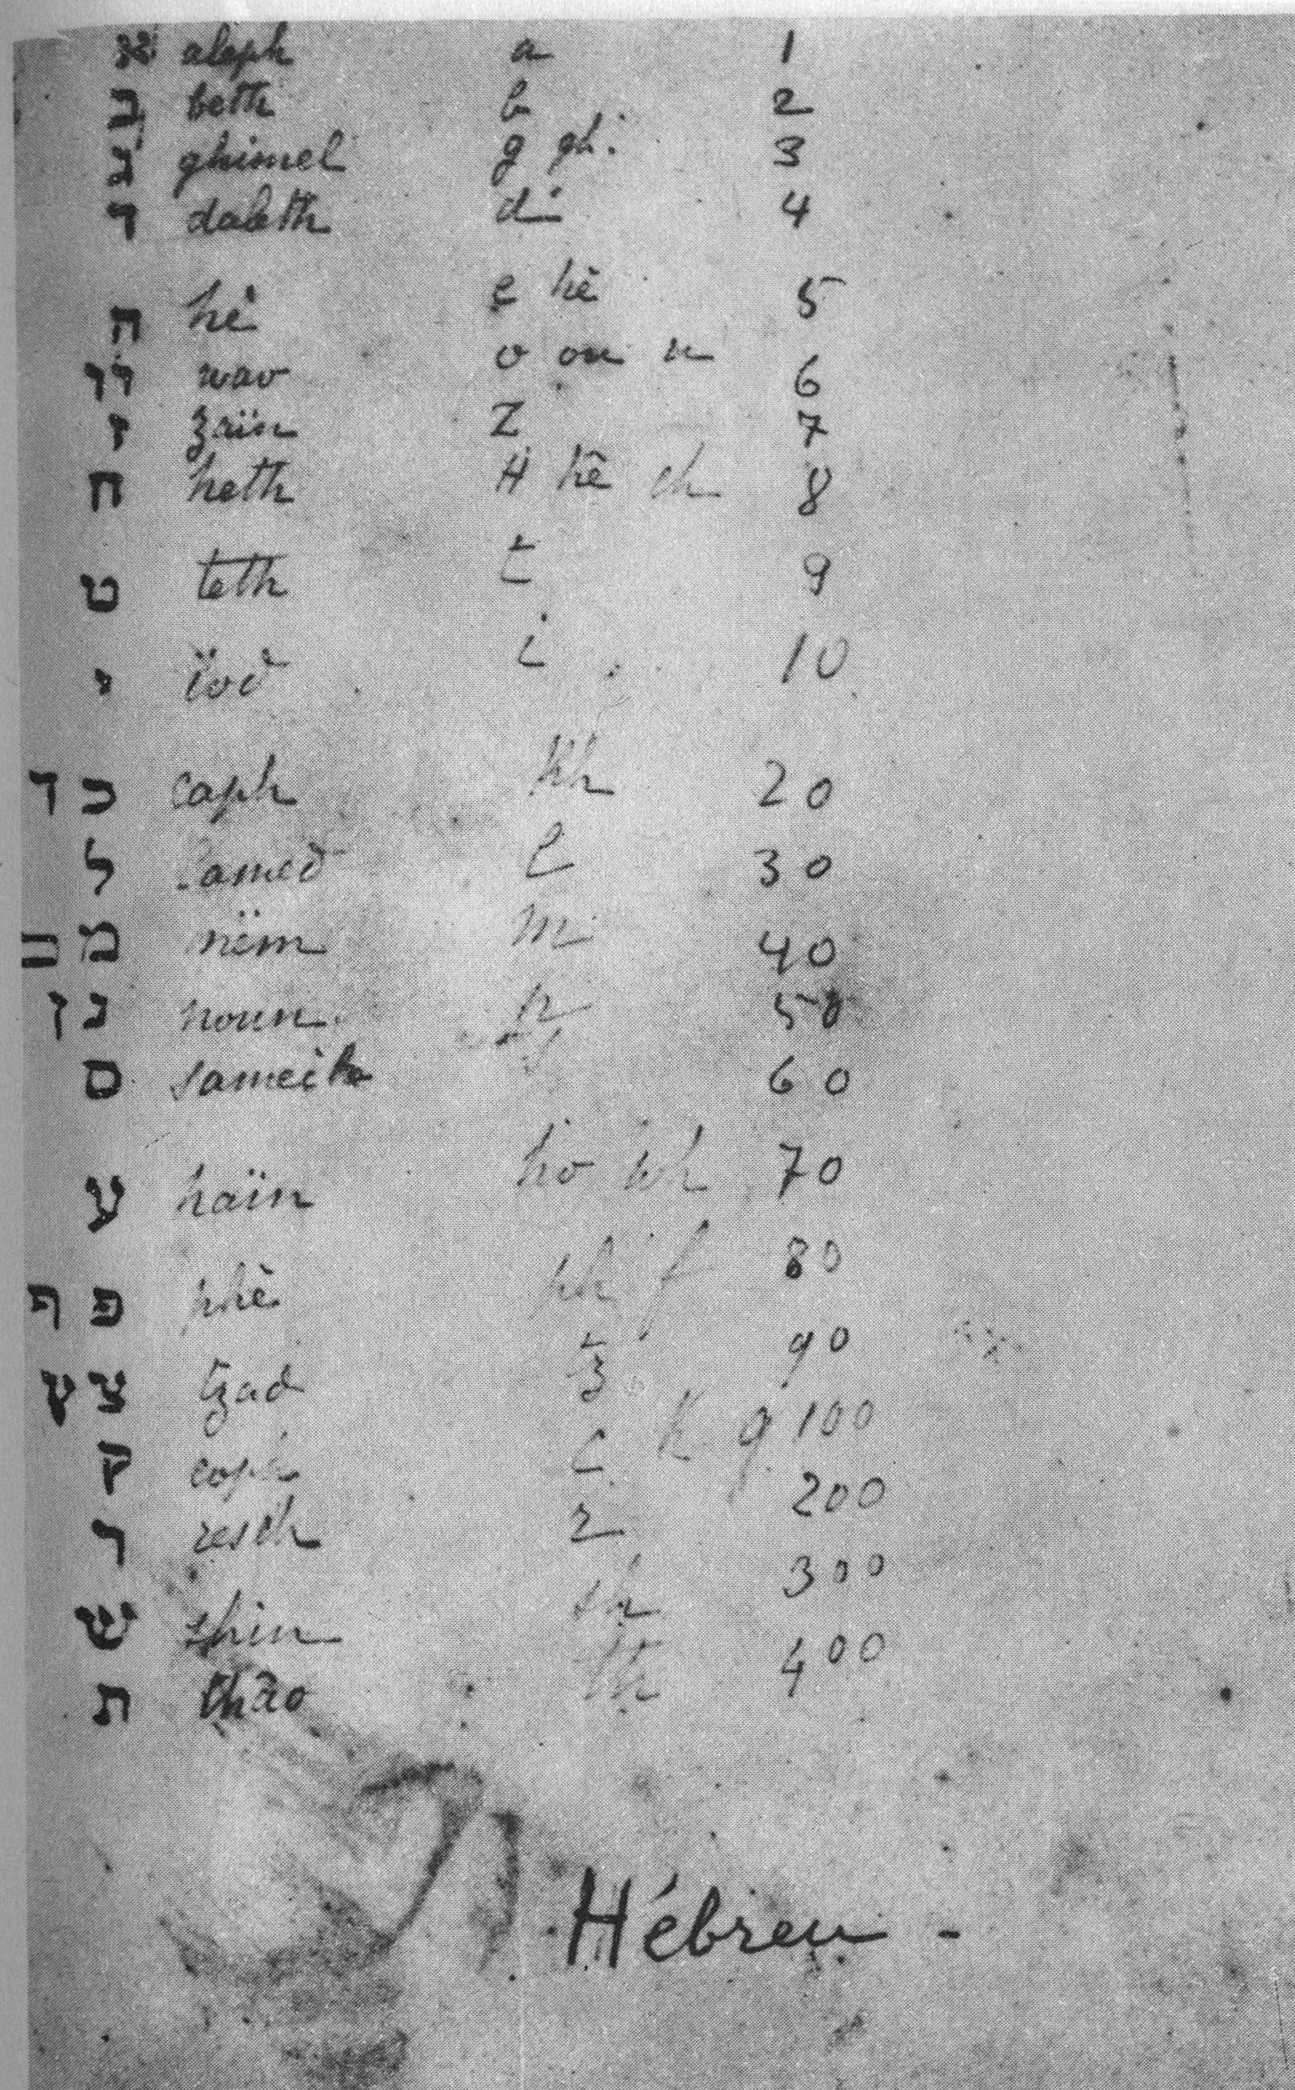 א aleph a 1
ב beth b 2
ג ghimel g gh. 3
ד daleth d 4
ה hè e hè 5
ו wav o ou u 6
ז zaïn Z 7
ח heth H hê ch 8
ט teth t 9
י ïod i 10
ך כ caph kh 20
ל lamed l 30
ם מ mëm m 40
ן נ noun n 50
ס samech s 60
ע haïn ho wh 70
ף פ phè ph f 80
ץ צ tzad tz 90
ק coph C K q 100
ר resch r 200
ש shin sh 300
ת thão th 400
Hébreu -